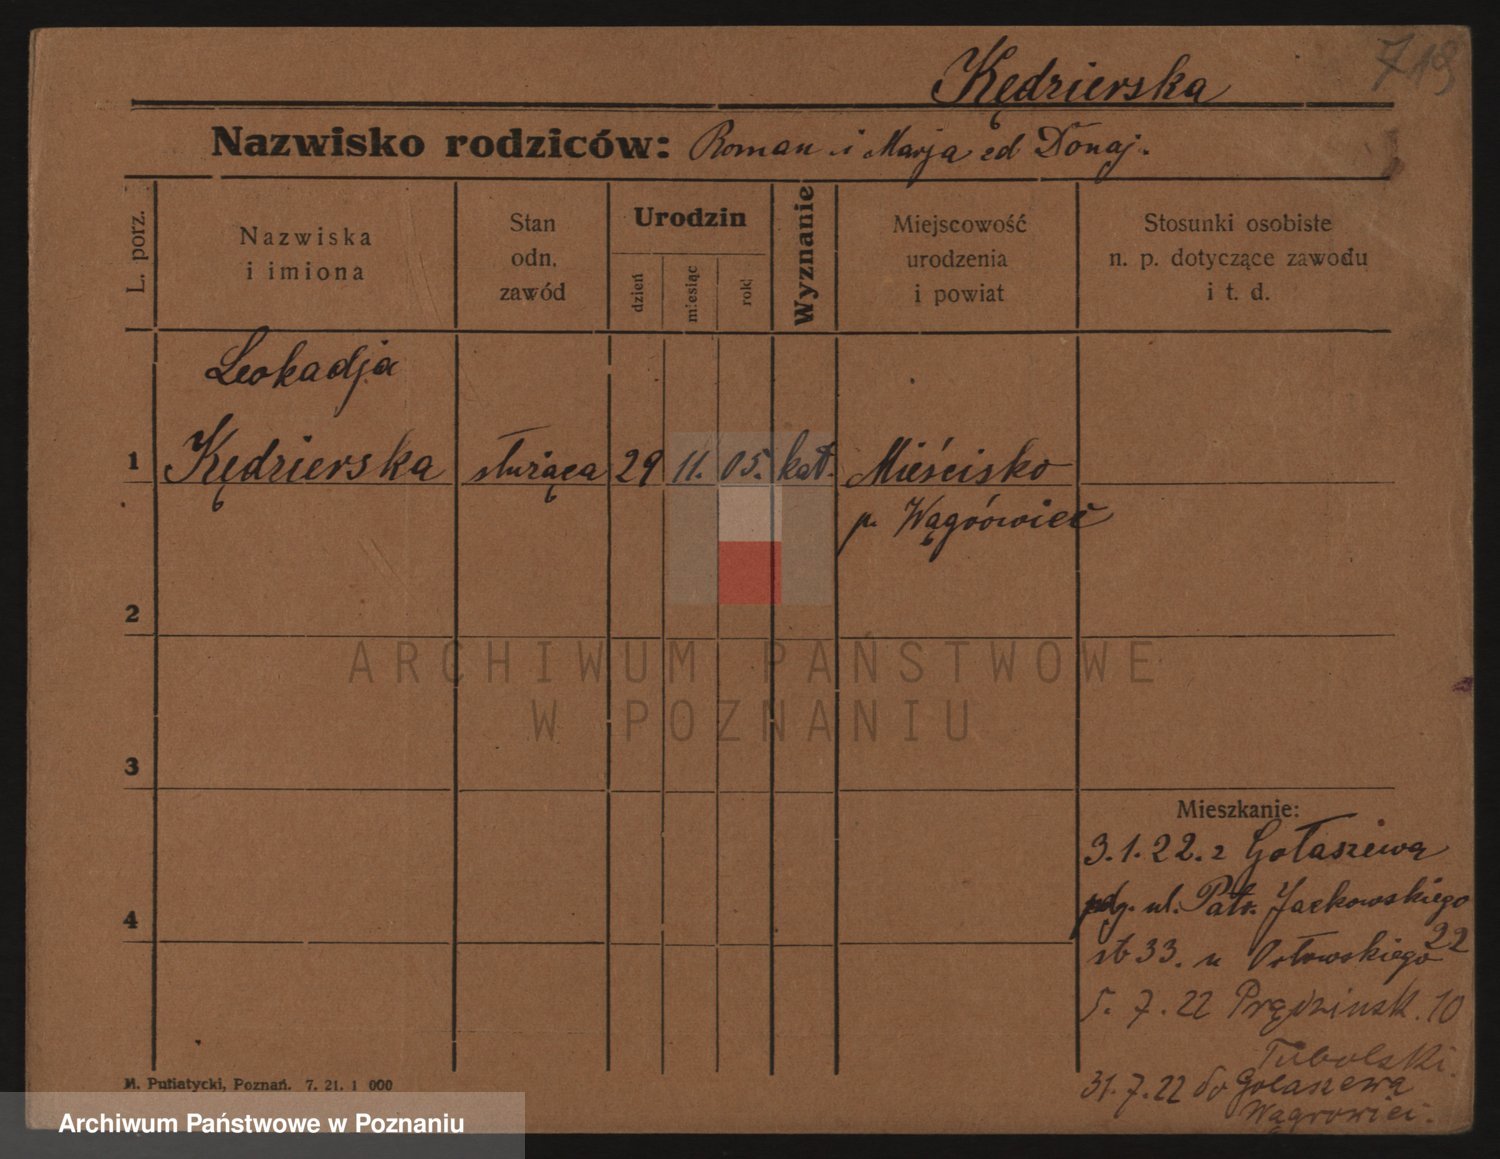 713
Kędzierska
Nazwisko rodziców: Roman i Marja zd Donaj.
L. porz.
Nazwiska
i imiona
Stan
odn.
zawód
Urodzin
dzień
miesiąc
rok
Wyznanie
Miejscowość
urodzenia
i powiat
Stosunki osobiste
n. p. dotyczące zawodu
i t. d.
Leokadja
1 Kędzierska służąca 29 11. 05. kat. Mieścisko
p. Wągrówiec
2
3
4
Mieszkanie:
3.1.22. z Gołaszewa
pdg. ul. Patr. Jackowskiego
st 33. u Ostowskiego 22
5. 7. 22 Prądzinsk. 10
Tubolski.
31.7.22 do Golaszewa
Wągrowiec.
M. Putiatycki, Poznań. 7. 21. 1 000
ARCHIWUM PAŃSTWOWE
W POZNANIU
Archiwum Państwowe w Poznaniu